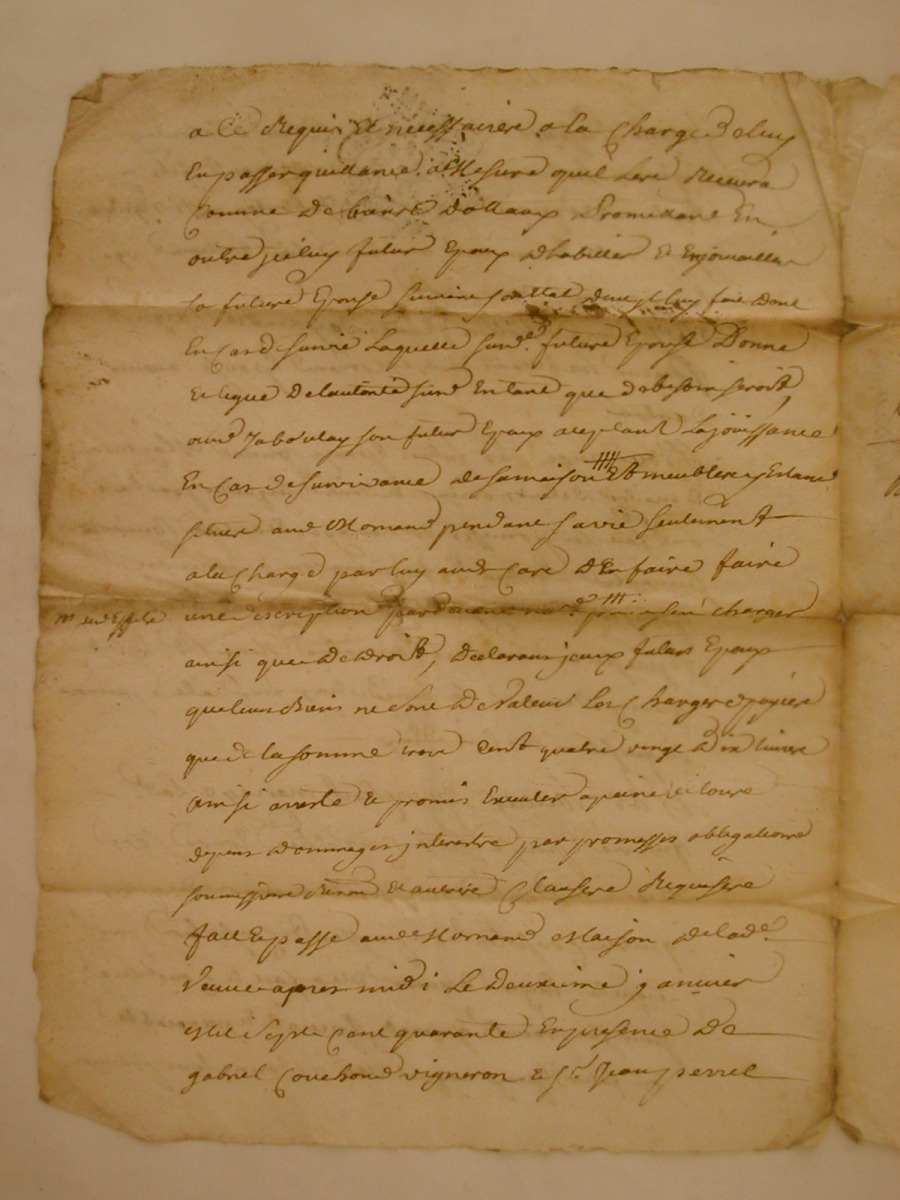 a ce Requis Et necessaire a la Charge de luy
En passer quittance a Mesure quil Les Recevra
Comme de biens dottaux Promettant En
outre jceluy futur Epoux d'habiller Et Enjouailler
sa future Epouse suivant son Etat luy fait Donc
En Cas de survie Laquelle susd.e future Epouse Donne
Et legue De lautorité susd En tant que de besoin seroit,
aud Jaboulay son futur Epoux aceptant La jouissance
En Cas de survivance de sa maison Et meubles y Estans
situes aud Mornand pendant sa vie seulement
a la Charge par luy aud Cas d'En faire faire
une description charger
ainsi que De Droit, Declarans jceux futurs Epoux
que leurs Biens ne sont De Valeur Les Charges payées
que de la somme trois Cent quatre vingt Dix livres
ainsi arreste Et promis Executer a peine de tous
depens Dommages jnterests par promesses obligations
soumissions Renon Et autres Clauses Requises
fait Et passé aud Mornand Maison De lad.e
Veuve apres midi Le Deuxieme janvier
Mil Sept Cent quarante En presence De
gabriel Couchoud vigneron & s.r Jean